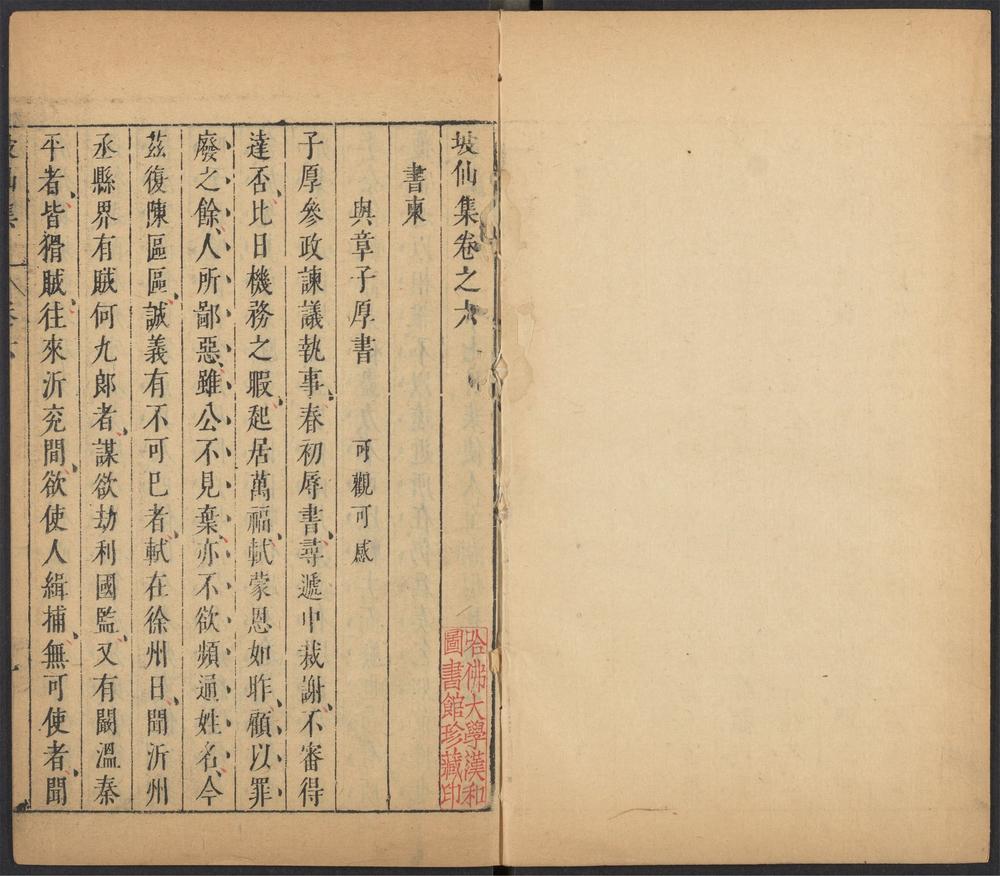 坡仙集卷之六
書柬
與章子厚書　可觀可感
子厚參政諫議執事春初辱書尋遞中裁謝不審得
達否比日機務之暇起居萬福軾蒙恩如昨顧以罪
廢之餘人所鄙惡雖公不見棄亦不欲頻通姓名今
茲復陳區區誠義有不可已者軾在徐州日聞沂州
丞縣界有賊何九郎者謀欲劫利國監又有闞溫秦
平者皆猾賊往來沂兗間欲使人緝捕無可使者聞
哈佛大學漢和
圖書館珍藏印